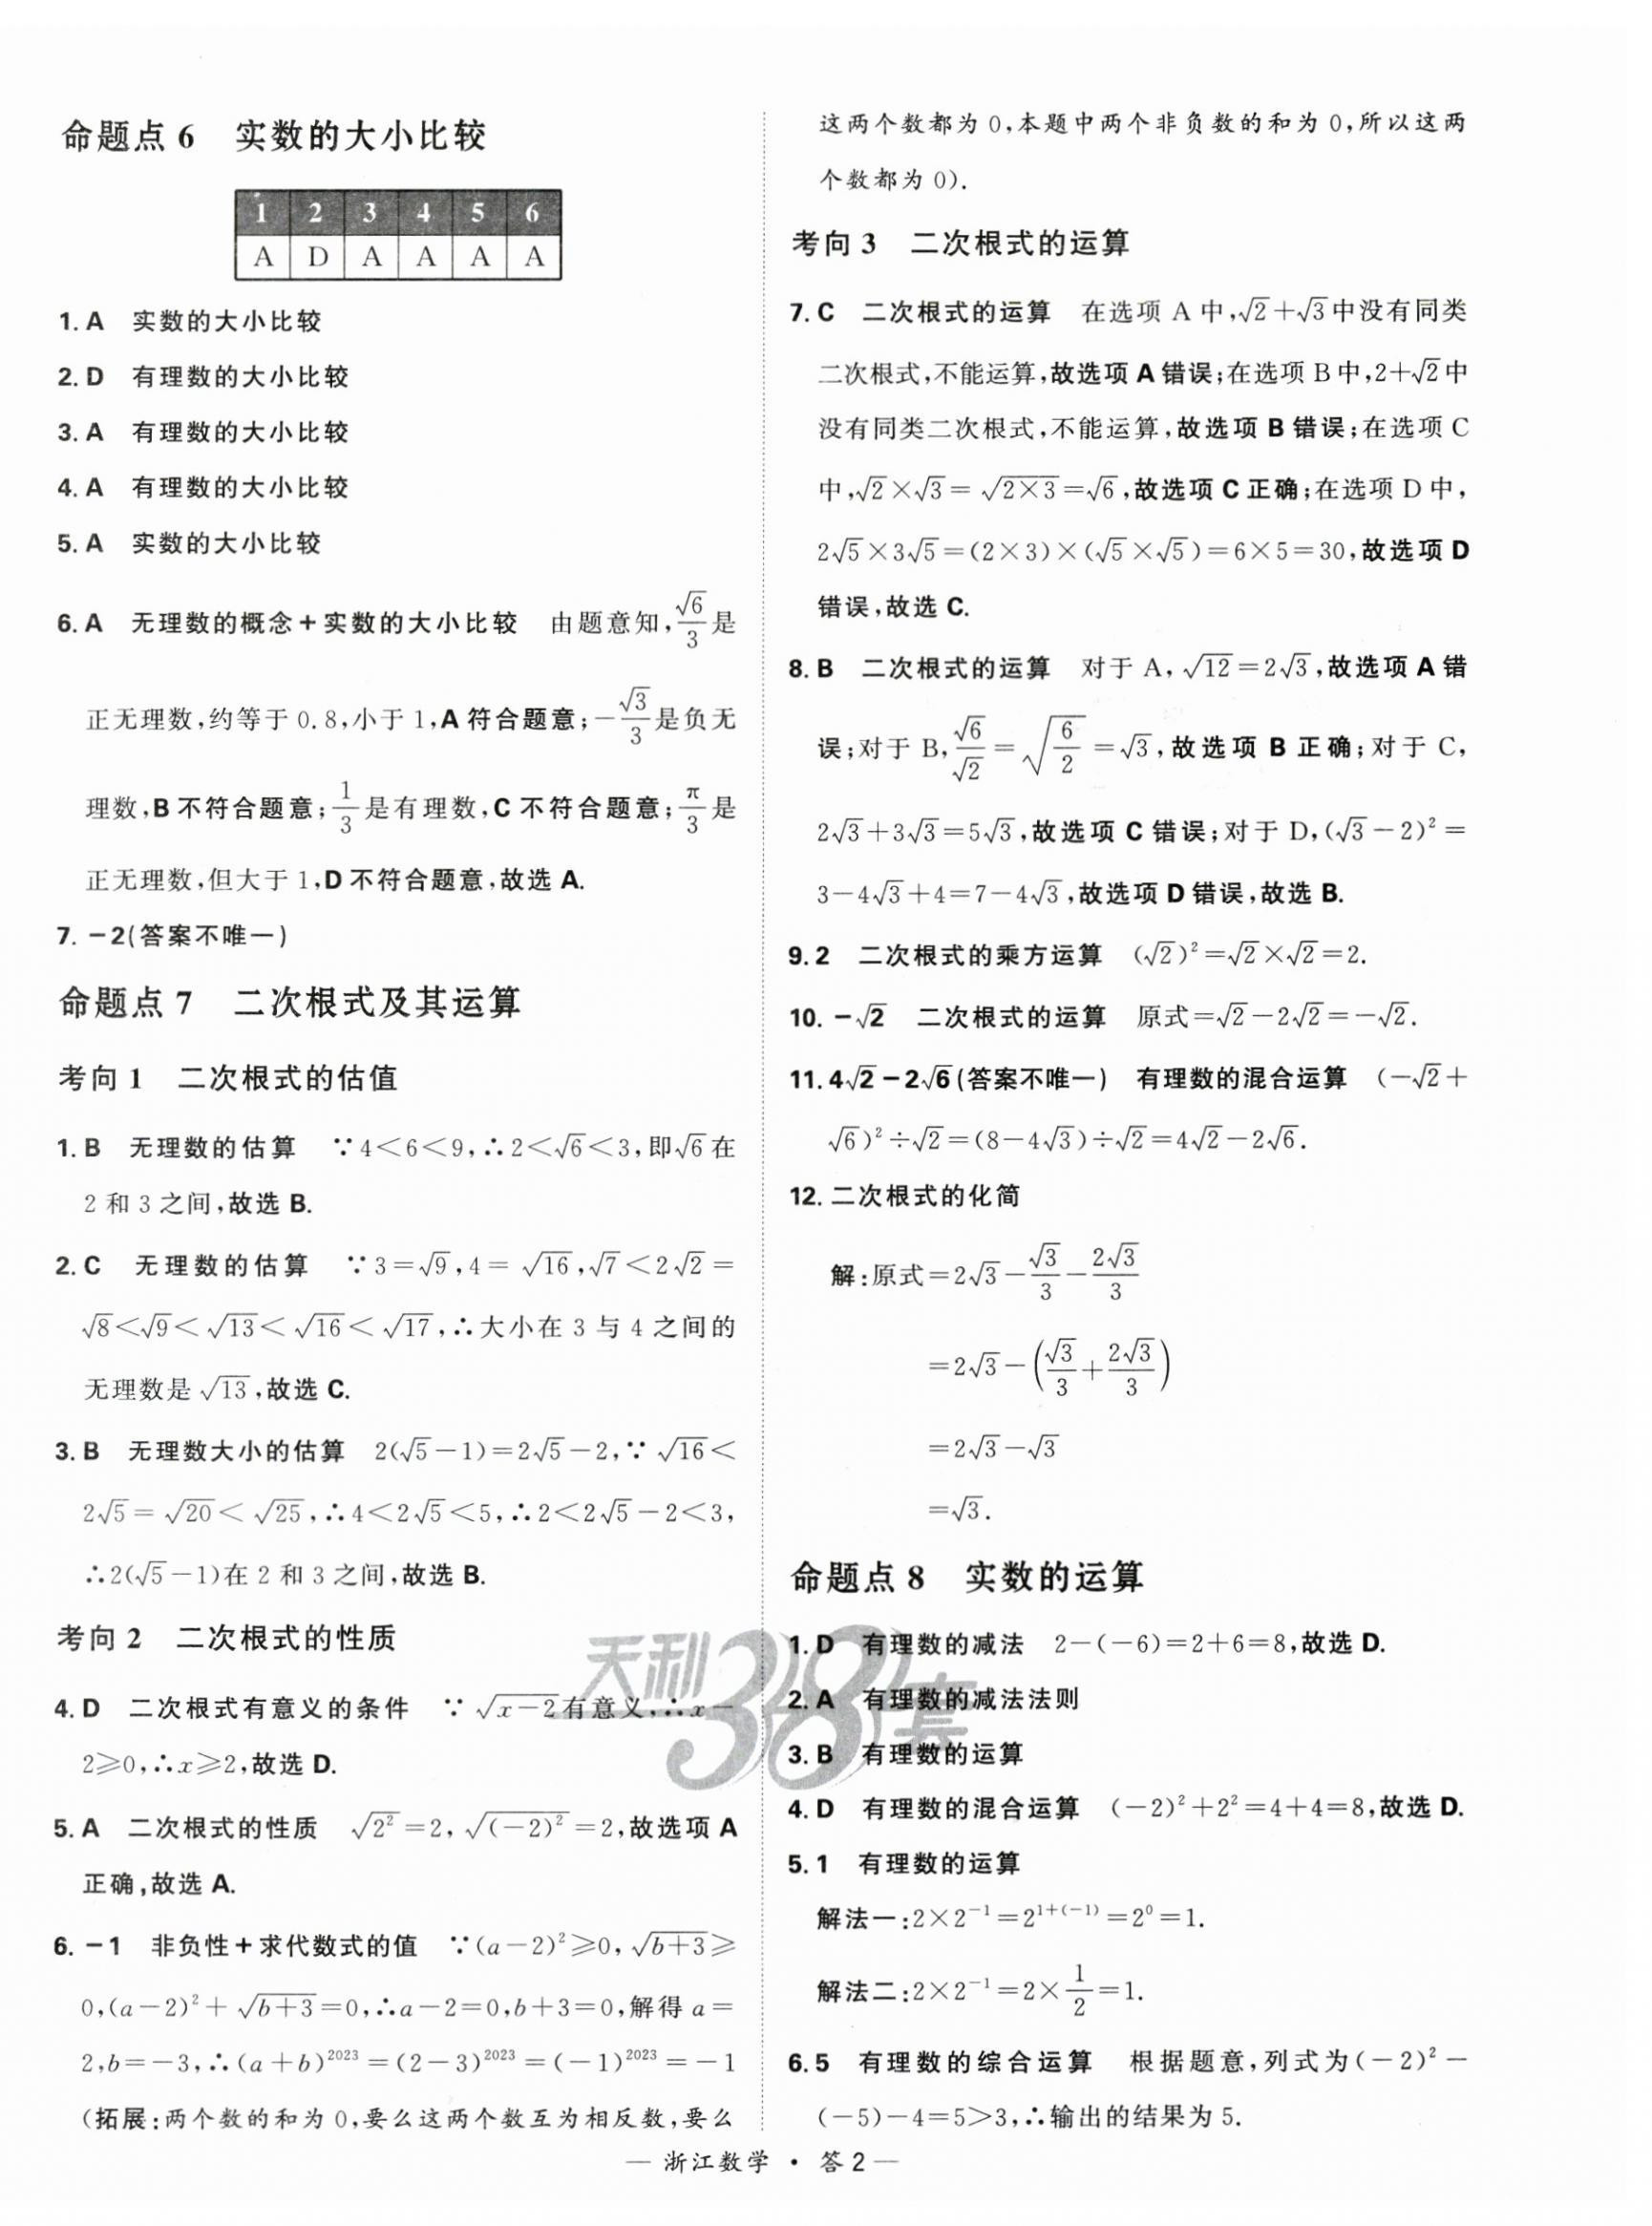 命题点6 实数的大小比较
1 2 3 4 5 6
A D A A A A
1. A 实数的大小比较
2. D 有理数的大小比较
3. A 有理数的大小比较
4. A 有理数的大小比较
5. A 实数的大小比较
6. A 无理数的概念+实数的大小比较 由题意知,√6/3是
正无理数,约等于0.8,小于1,A符合题意;-√3/3是负无
理数,B不符合题意;1/3是有理数,C不符合题意;π/3是
正无理数,但大于1,D不符合题意,故选A.
7. -2(答案不唯一)
命题点7 二次根式及其运算
考向1 二次根式的估值
1. B 无理数的估算 ∵4<6<9,∴2<√6<3,即√6在
2和3之间,故选B.
2. C 无理数的估算 ∵3=√9,4=√16,√7<2√2=
√8<√9<√13<√16<√17,∴大小在3与4之间的
无理数是√13,故选C.
3. B 无理数大小的估算 2(√5-1)=2√5-2,∵√16<
2√5=√20<√25,∴4<2√5<5,∴2<2√5-2<3,
∴2(√5-1)在2和3之间,故选B.
考向2 二次根式的性质
4. D 二次根式有意义的条件 ∵√(x-2)有意义,∴x-
2≥0,∴x≥2,故选D.
5. A 二次根式的性质 √(2²)=2,√((-2)²)=2,故选项A
正确,故选A.
6. -1 非负性+求代数式的值 ∵(a-2)²≥0,√(b+3)≥
0,(a-2)²+√(b+3)=0,∴a-2=0,b+3=0,解得a=
2,b=-3,∴(a+b)²⁰²³=(2-3)²⁰²³=(-1)²⁰²³=-1
(拓展:两个数的和为0,要么这两个数互为相反数,要么
这两个数都为0,本题中两个非负数的和为0,所以这两
个数都为0).
考向3 二次根式的运算
7. C 二次根式的运算 在选项A中,√2+√3中没有同类
二次根式,不能运算,故选项A错误;在选项B中,2+√2中
没有同类二次根式,不能运算,故选项B错误;在选项C
中,√2×√3=√(2×3)=√6,故选项C正确;在选项D中,
2√5×3√5=(2×3)×(√5×√5)=6×5=30,故选项D
错误,故选C.
8. B 二次根式的运算 对于A,√12=2√3,故选项A错
误;对于B,√6/√2=√(6/2)=√3,故选项B正确;对于C,
2√3+3√3=5√3,故选项C错误;对于D,(√3-2)²=
3-4√3+4=7-4√3,故选项D错误,故选B.
9. 2 二次根式的乘方运算 (√2)²=√2×√2=2.
10. -√2 二次根式的运算 原式=√2-2√2=-√2.
11. 4√2-2√6(答案不唯一) 有理数的混合运算 (-√2+
√6)²÷√2=(8-4√3)÷√2=4√2-2√6.
12. 二次根式的化简
解:原式=2√3-√3/3-2√3/3
=2√3-(√3/3+2√3/3)
=2√3-√3
=√3.
命题点8 实数的运算
1. D 有理数的减法 2-(-6)=2+6=8,故选D.
2. A 有理数的减法法则
3. B 有理数的运算
4. D 有理数的混合运算 (-2)²+2²=4+4=8,故选D.
5. 1 有理数的运算
解法一:2×2⁻¹=2¹⁺⁽⁻¹⁾=2⁰=1.
解法二:2×2⁻¹=2×1/2=1.
6. 5 有理数的综合运算 根据题意,列式为(-2)²-
(-5)-4=5>3,∴输出的结果为5.
天利38套
— 浙江数学 · 答2 —